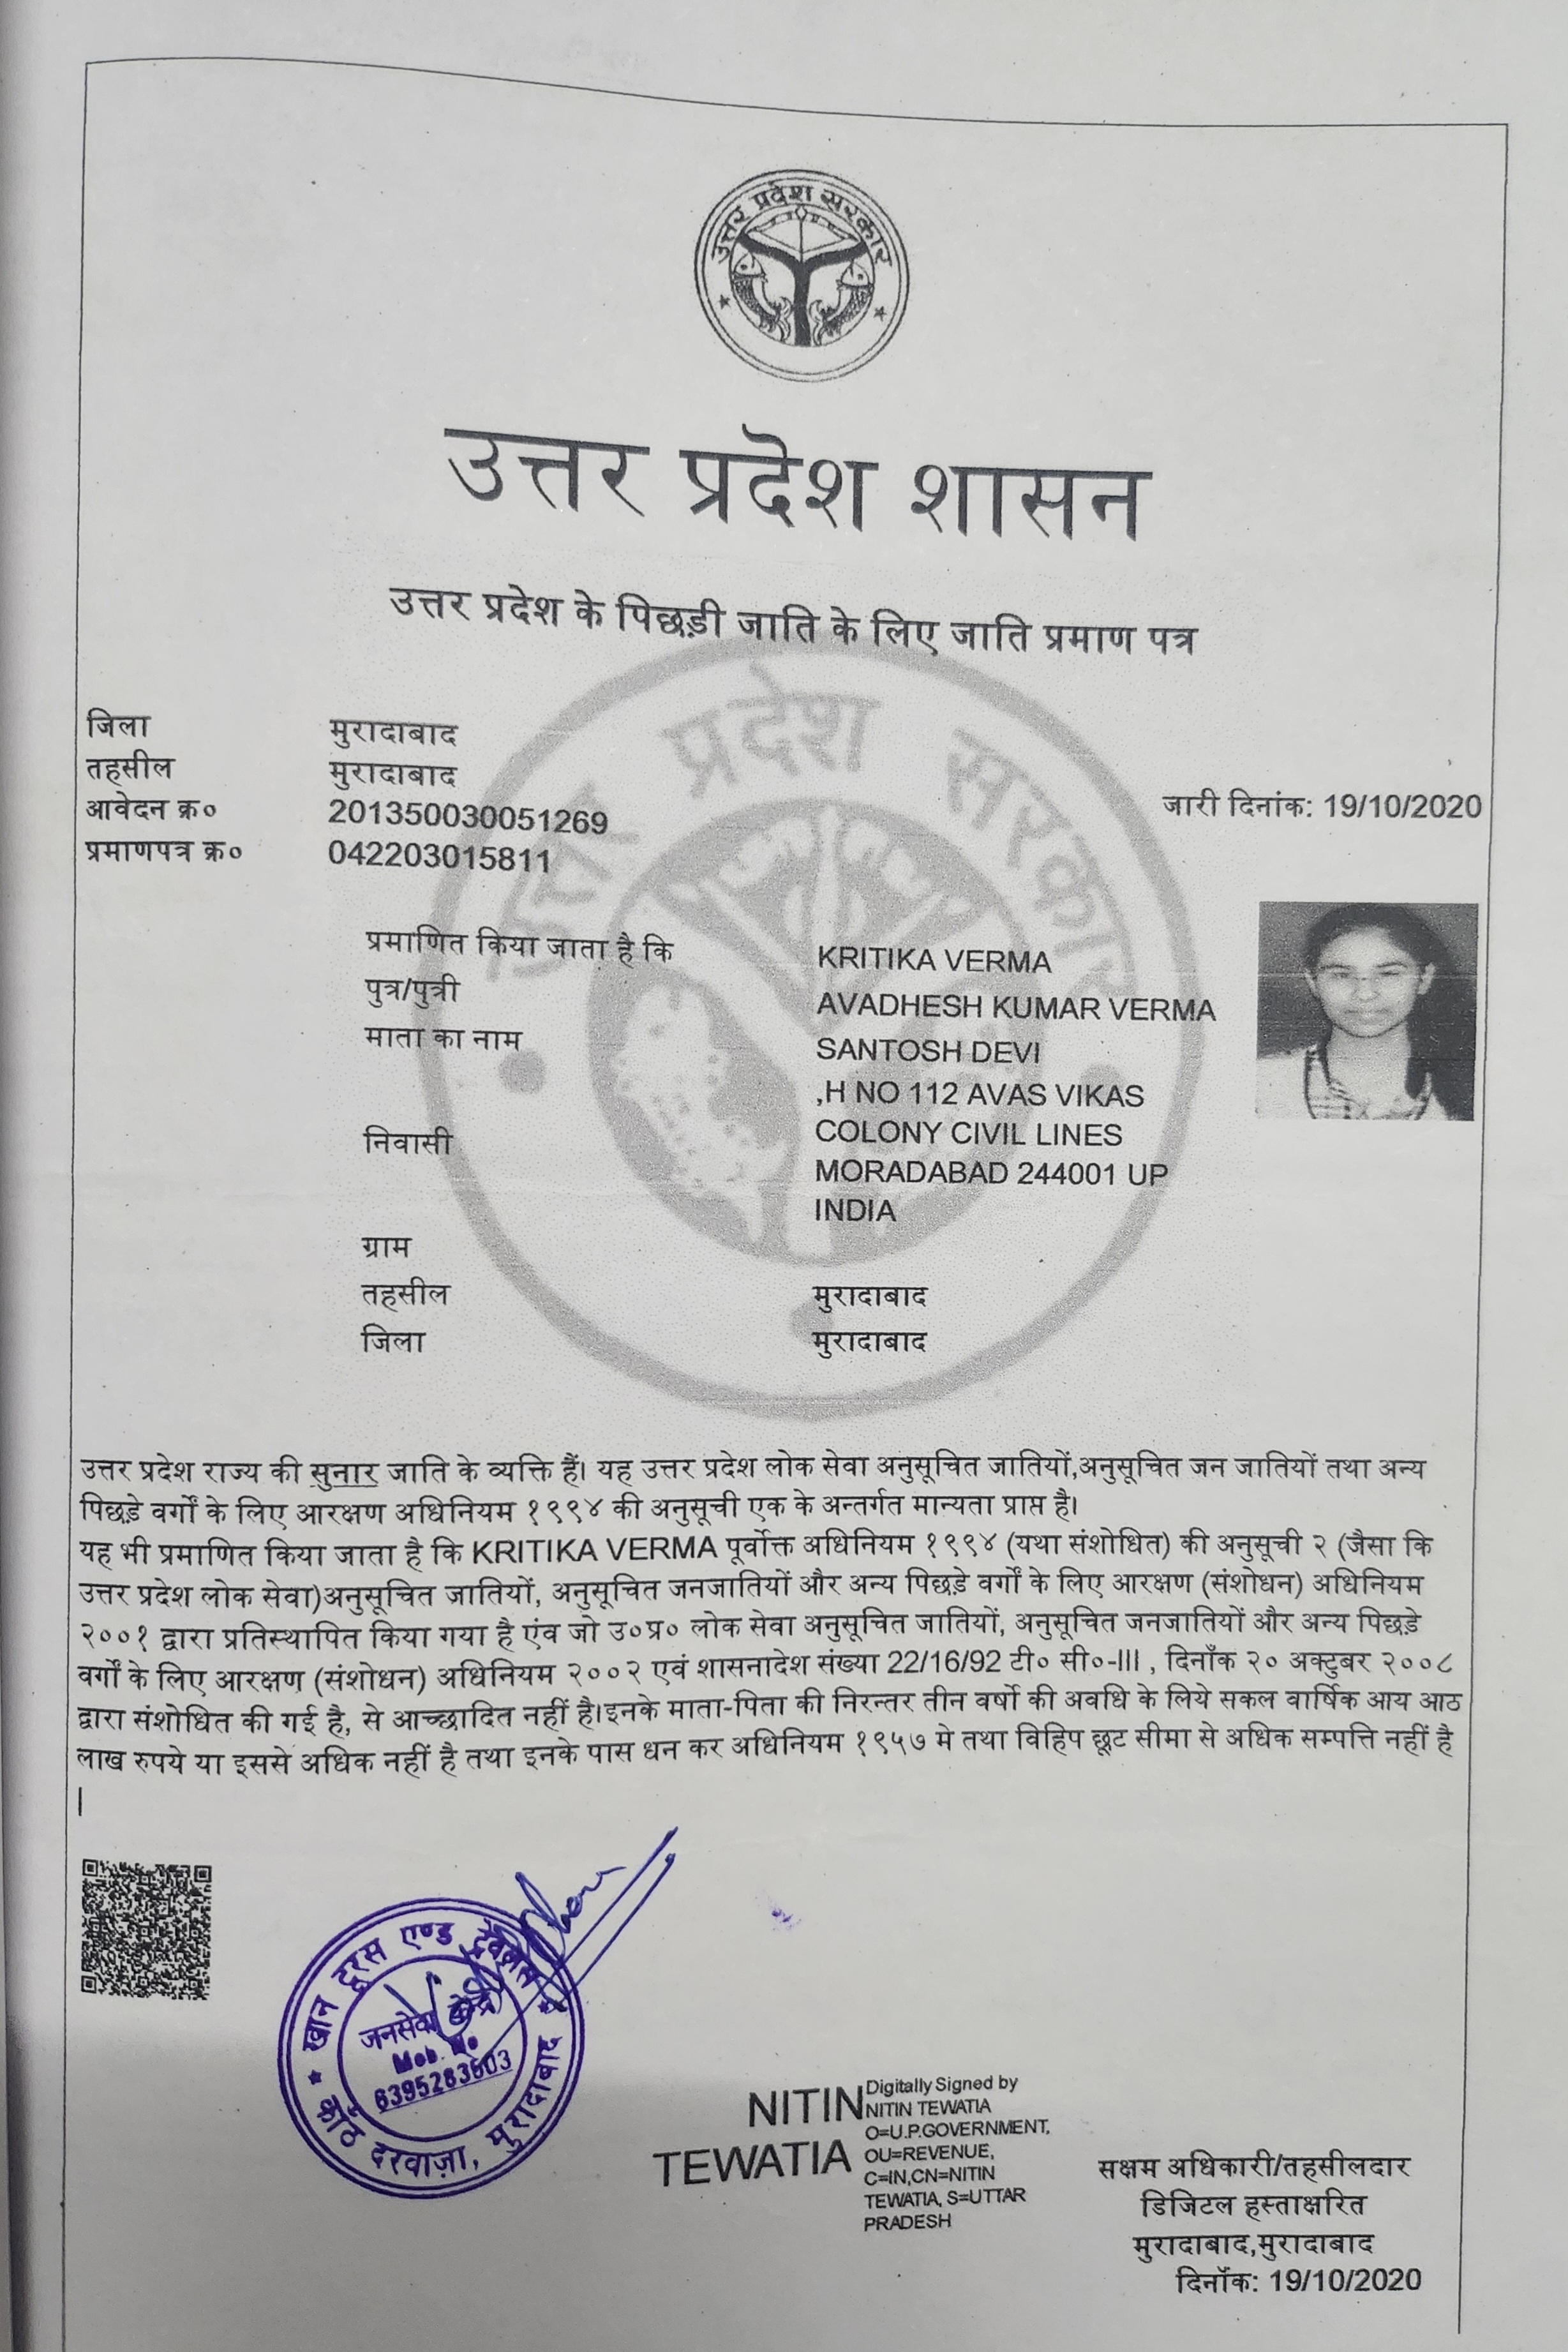 उत्तर प्रदेश सरकार
उत्तर प्रदेश शासन
उत्तर प्रदेश के पिछड़ी जाति के लिए जाति प्रमाण पत्र
उत्तर प्रदेश सरकार
जिला मुरादाबाद
तहसील मुरादाबाद
आवेदन क्र० 201350030051269 जारी दिनांक: 19/10/2020
प्रमाणपत्र क्र० 042203015811
प्रमाणित किया जाता है कि KRITIKA VERMA
पुत्र/पुत्री AVADHESH KUMAR VERMA
माता का नाम SANTOSH DEVI
,H NO 112 AVAS VIKAS
निवासी COLONY CIVIL LINES
MORADABAD 244001 UP
INDIA
ग्राम
तहसील मुरादाबाद
जिला मुरादाबाद
उत्तर प्रदेश राज्य की सुनार जाति के व्यक्ति हैं। यह उत्तर प्रदेश लोक सेवा अनुसूचित जातियों,अनुसूचित जन जातियों तथा अन्य
पिछड़े वर्गों के लिए आरक्षण अधिनियम १९९४ की अनुसूची एक के अन्तर्गत मान्यता प्राप्त है।
यह भी प्रमाणित किया जाता है कि KRITIKA VERMA पूर्वोक्त अधिनियम १९९४ (यथा संशोधित) की अनुसूची २ (जैसा कि
उत्तर प्रदेश लोक सेवा)अनुसूचित जातियों, अनुसूचित जनजातियों और अन्य पिछड़े वर्गों के लिए आरक्षण (संशोधन) अधिनियम
२००१ द्वारा प्रतिस्थापित किया गया है एंव जो उ०प्र० लोक सेवा अनुसूचित जातियों, अनुसूचित जनजातियों और अन्य पिछड़े
वर्गों के लिए आरक्षण (संशोधन) अधिनियम २००२ एवं शासनादेश संख्या 22/16/92 टी० सी०-III , दिनाँक २० अक्टुबर २००८
द्वारा संशोधित की गई है, से आच्छादित नहीं है।इनके माता-पिता की निरन्तर तीन वर्षो की अवधि के लिये सकल वार्षिक आय आठ
लाख रुपये या इससे अधिक नहीं है तथा इनके पास धन कर अधिनियम १९५७ मे तथा विहिप छूट सीमा से अधिक सम्पत्ति नहीं है
|
खान टूरस एण्ड ट्रैवेलस
जनसेवा केन्द्र
Mob. No
6395283603
कोठ दरवाज़ा, मुरादाबाद
NITIN
TEWATIA
Digitally Signed by
NITIN TEWATIA
O=U.P.GOVERNMENT,
OU=REVENUE,
C=IN,CN=NITIN
TEWATIA, S=UTTAR
PRADESH
सक्षम अधिकारी/तहसीलदार
डिजिटल हस्ताक्षरित
मुरादाबाद,मुरादाबाद
दिनॉंक: 19/10/2020